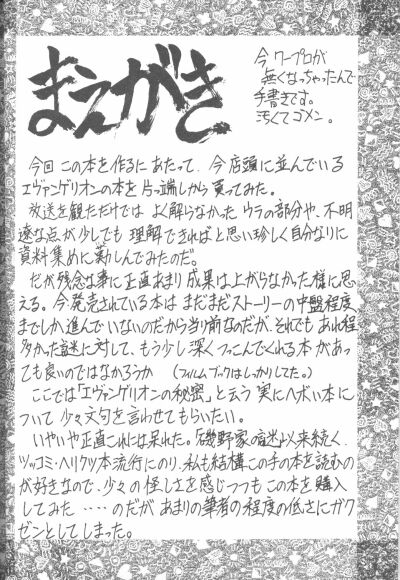 まえがき
今ワープロが
無くなっちゃったんで
手書きです。
汚くてゴメン。
今回この本を作るにあたって、今店頭に並んでいる
エヴァンゲリオンの本を片っ端しから買ってみた。
放送を観ただけでは よく解らなかったウラの部分や、不明
瞭な点が少しでも理解できればと思い珍しく自分なりに
資料集めに勤しんでみたのだ。
だが残念な事に正直あまり成果は上がらなかった様に思
える。今発売されている本はまだまだストーリーの中盤程度
までしか進んでいないのだから当り前なのだが、それでもあれ程
多かった謎に対して、もう少し深くつっこんでくれる本があっ
ても良いのではなかろうか (フィルムブックはしっかりしてた。)
ここでは「エヴァンゲリオンの秘密」と云う実にヘボい本に
ついて少々文句を言わせてもらいたい。
いやいや正直これには呆れた。「磯野家の謎」以来続く、
ツッコミ・ヘリクツ本流行にのり、私も結構この手の本を読むの
が好きなので、少々の怪しさを感じつつもこの本を購入
してみた‥‥のだがあまりの筆者の程度の低さにガク
ゼンとしてしまった。